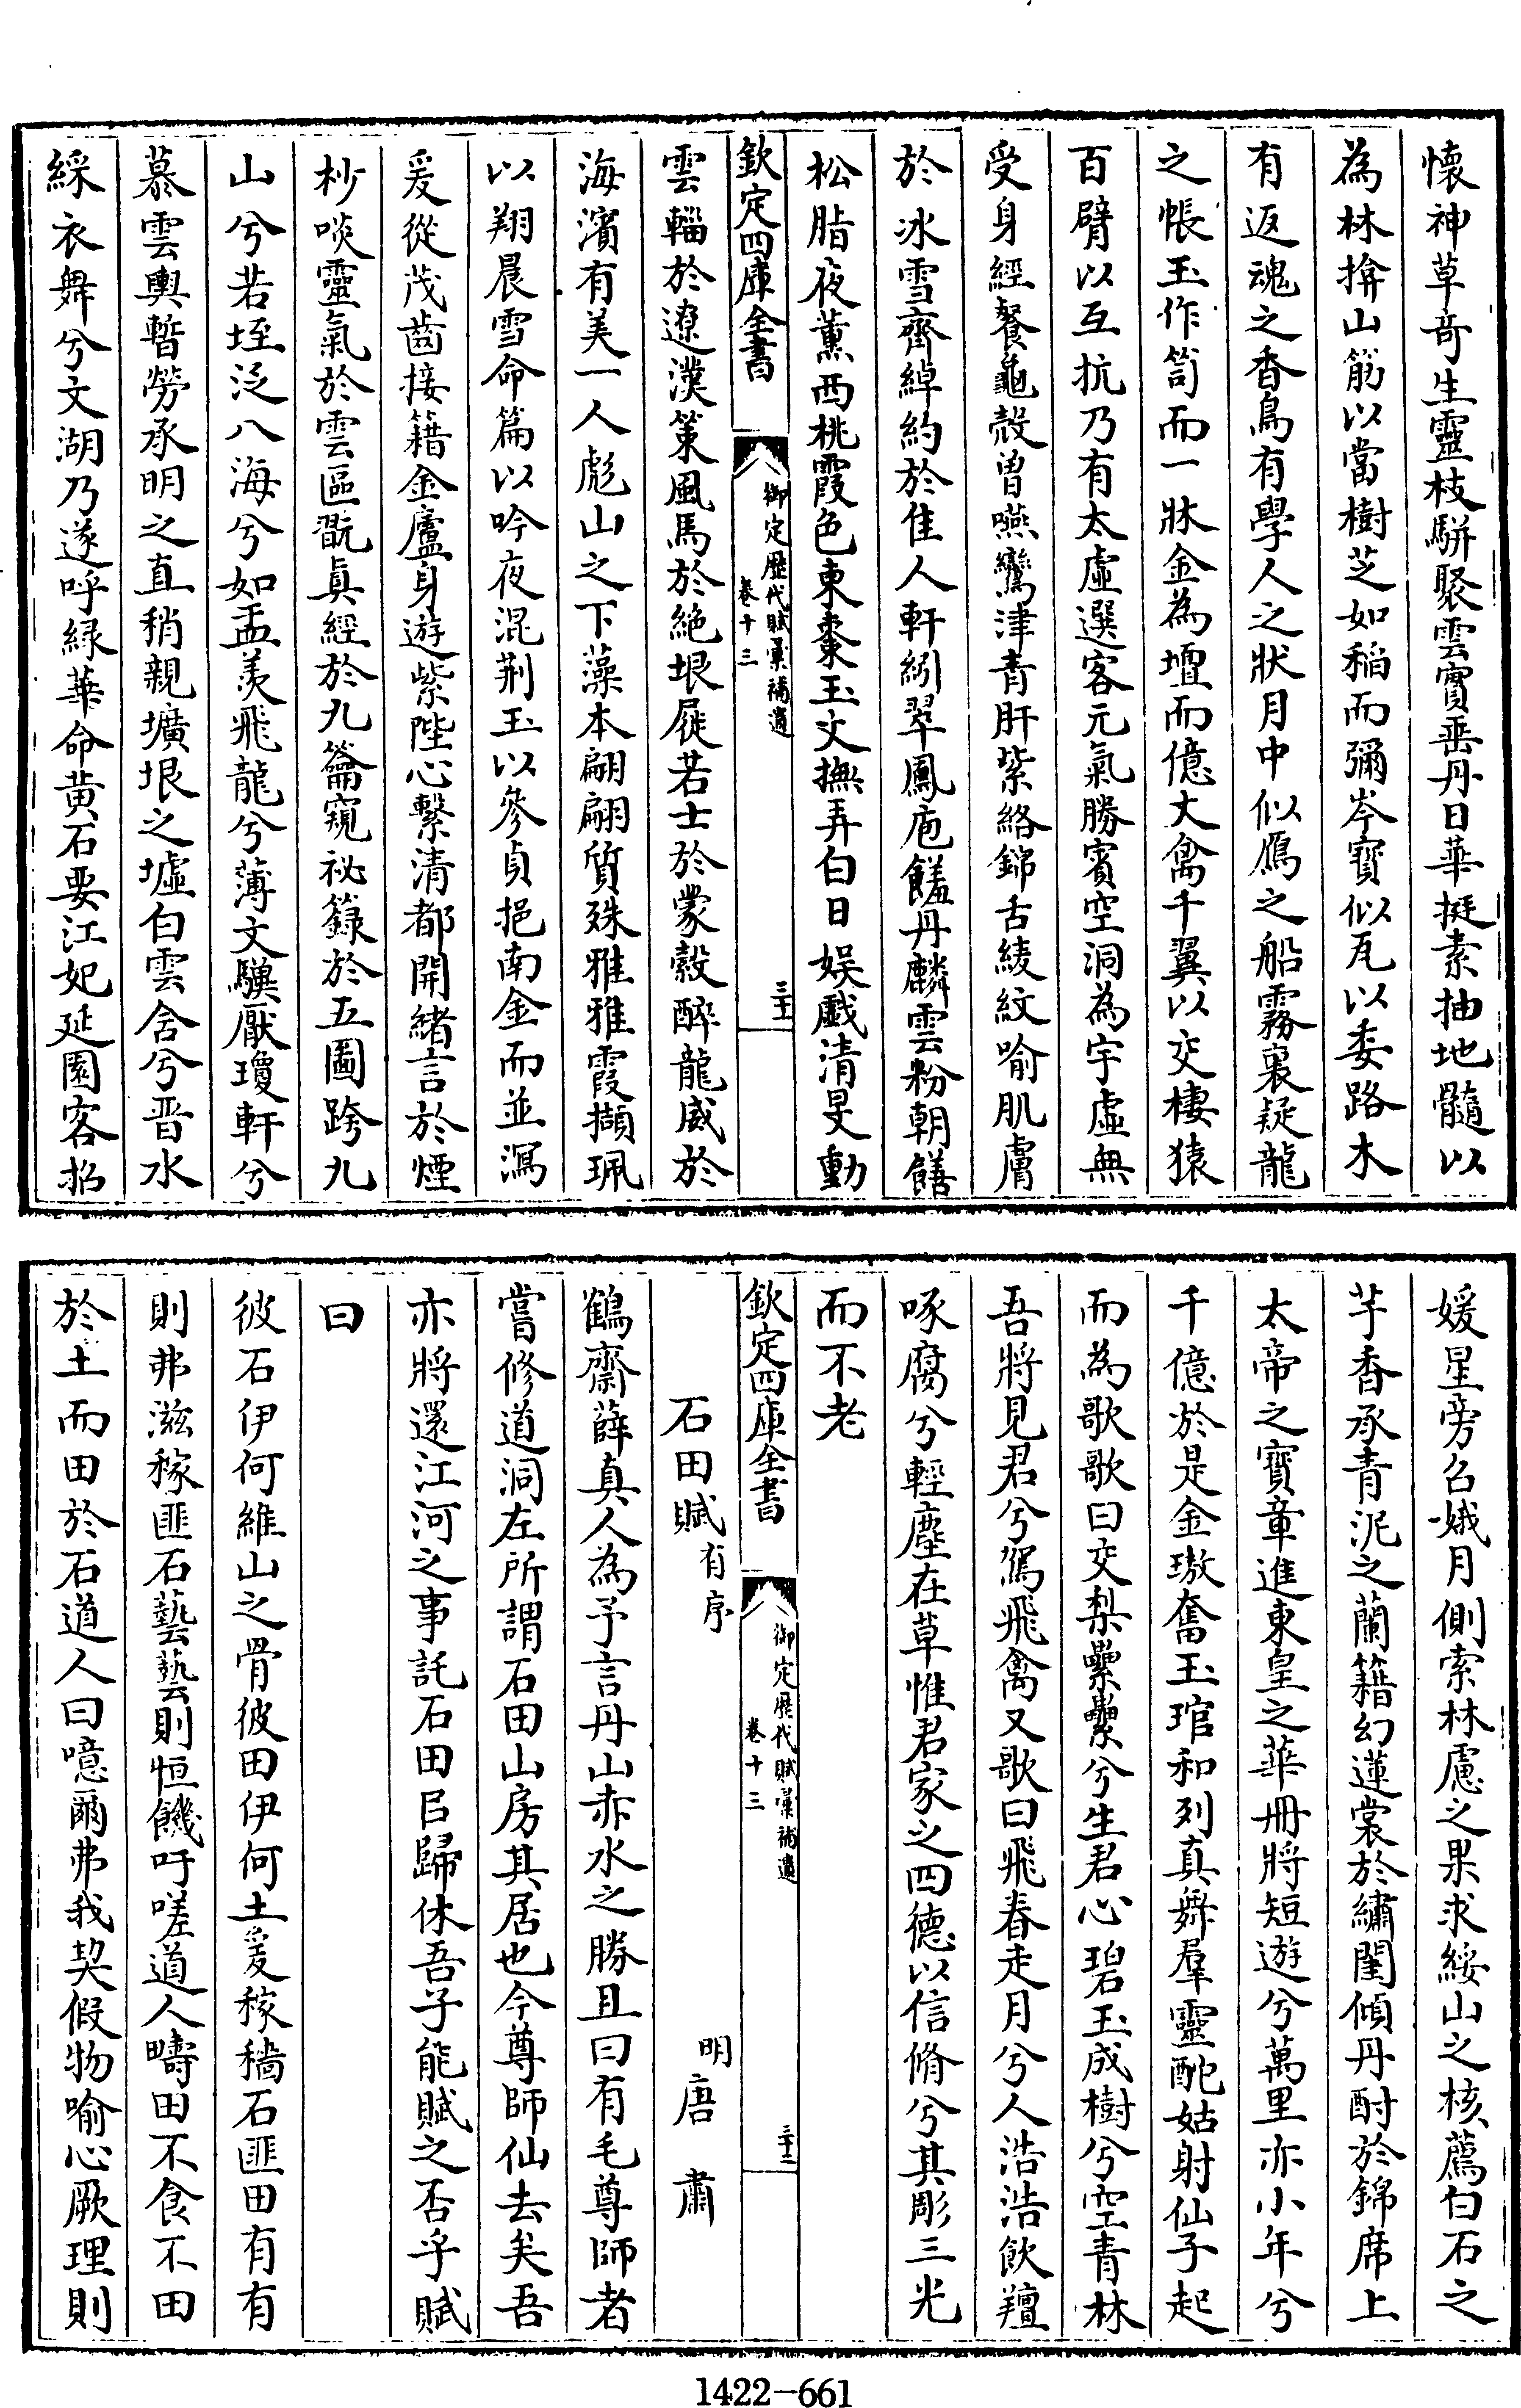 懷神草奇生靈枝駢聚雲實垂丹日華挺素抽地髓以
為林揜山筋以當樹芝如稻而彌岑寶似瓦以委路木
有返魂之香鳥有學人之狀月中似鴈之船霧裏疑龍
之帳玉作笥而一牀金為壇而億丈禽千翼以交棲猿
百臂以互抗乃有太虛選客元氣勝賓空洞為宇虛無
受身經餐龜殼曾嚥鸞津青肝紫絡錦舌綾紋喻肌膚
於冰雪齊綽約於佳人軒紖翠鳳庖饈丹麟雲粉朝饍
松脂夜薰西桃霞色東棗玉文撫弄白日娱戲清旻動
欽定四庫全書
御定歷代賦彙補遺
卷十三
三十一
雲輜於遼漢策風馬於絶垠屣若士於蒙縠醉龍威於
海濱有美一人彪山之下藻本翩翩質殊雅雅霞擷珮
以翔晨雪命篇以吟夜混荆玉以參貞挹南金而並瀉
爰從茂齒接籍金廬身遊紫陛心繫清都開緒言於煙
杪啖靈氣於雲區翫眞經於九籥窺祕籙於五圖跨九
山兮若垤泛八海兮如盂羨飛龍兮薄文驥厭瓊軒兮
慕雲輿暫勞承明之直稍親壙垠之墟白雲舍兮晋水
綵衣舞兮文湖乃遂呼緑華命黄石要江妃延園客招
媛星旁召娥月側索林慮之果求綏山之核薦白石之
芋香承青泥之蘭籍幻蓮裳於繡闈傾丹酎於錦席上
太帝之寶章進東皇之華冊將短遊兮萬里亦小年兮
千億於是金璈奮玉琯和列真舞羣靈酡姑射仙子起
而為歌歌曰交梨纍纍兮生君心碧玉成樹兮空青林
吾將見君兮駕飛禽又歌曰飛春走月兮人浩浩飲羶
啄腐兮輕塵在草惟君家之四德以信脩兮其彫三光
而不老
欽定四庫全書
御定歷代賦彙補遺
卷十三
三十二
石田賦有序
明唐肅
鶴齋薛真人為予言丹山赤水之勝且曰有毛尊師者
嘗修道洞左所謂石田山房其居也今尊師仙去矣吾
亦將還江河之事託石田㠯歸休吾子能賦之否乎賦
曰
彼石伊何維山之骨彼田伊何土爰稼穡石匪田有有
則弗滋稼匪石藝藝則恒饑吁嗟道人疇田不食不田
於土而田於石道人曰噫爾弗我契假物喻心厥理則
1422-661